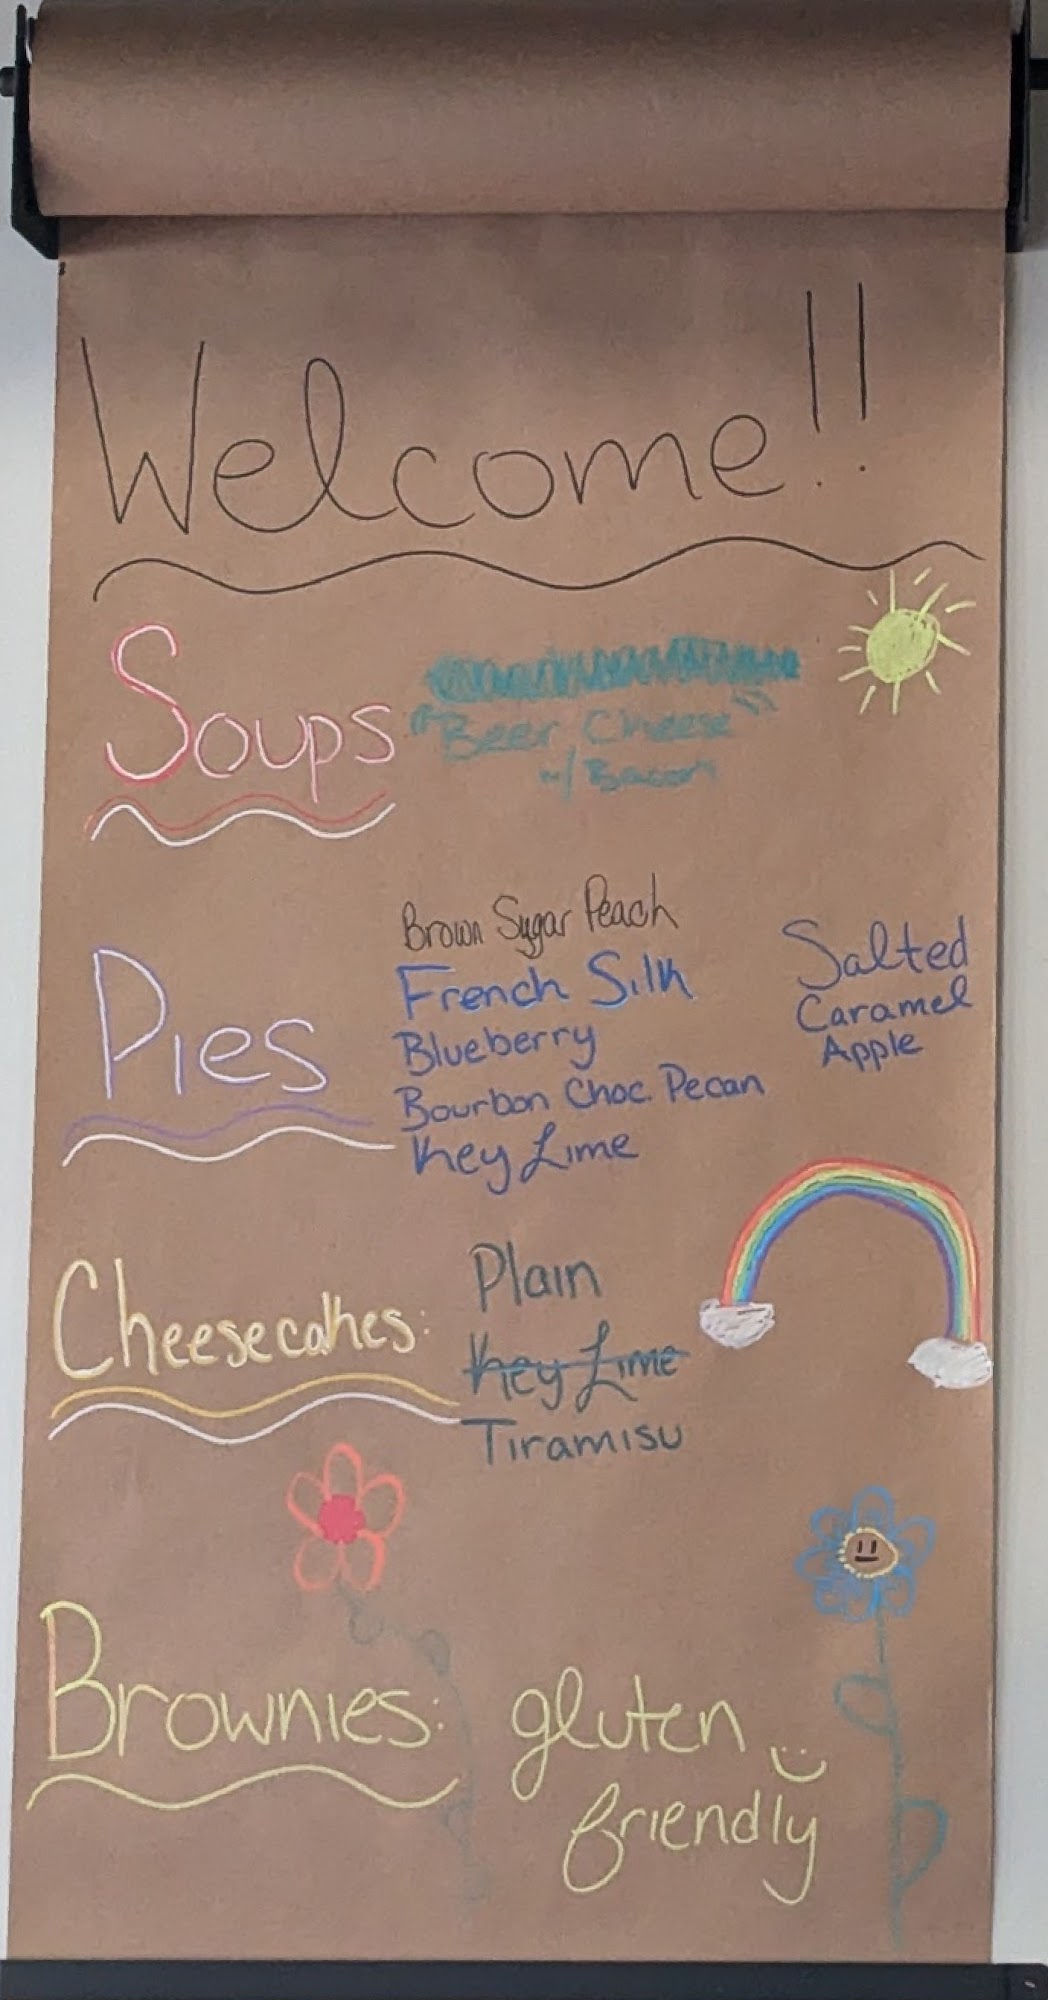 Welcome!!
Soups
"Beer Cheese"
w/ Bacon
Pies
Brown Sugar Peach
French Silk
Blueberry
Bourbon Choc. Pecan
Key Lime
Salted
Caramel
Apple
Cheesecakes:
Plain
Key Lime
Tiramisu
Brownies:
gluten
friendly